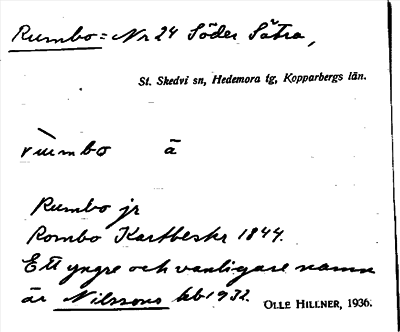 Rumbo = Nr 24 Söder Sätra,
St. Skedvi sn, Hedemora tg, Kopparbergs län.
rumbo ä
Rumbo jr
Rombo Kartbeskr 1844.
Ett yngre och vanligare namn
är Nilssons kb 1932.
OLLE HILLNER, 1936.